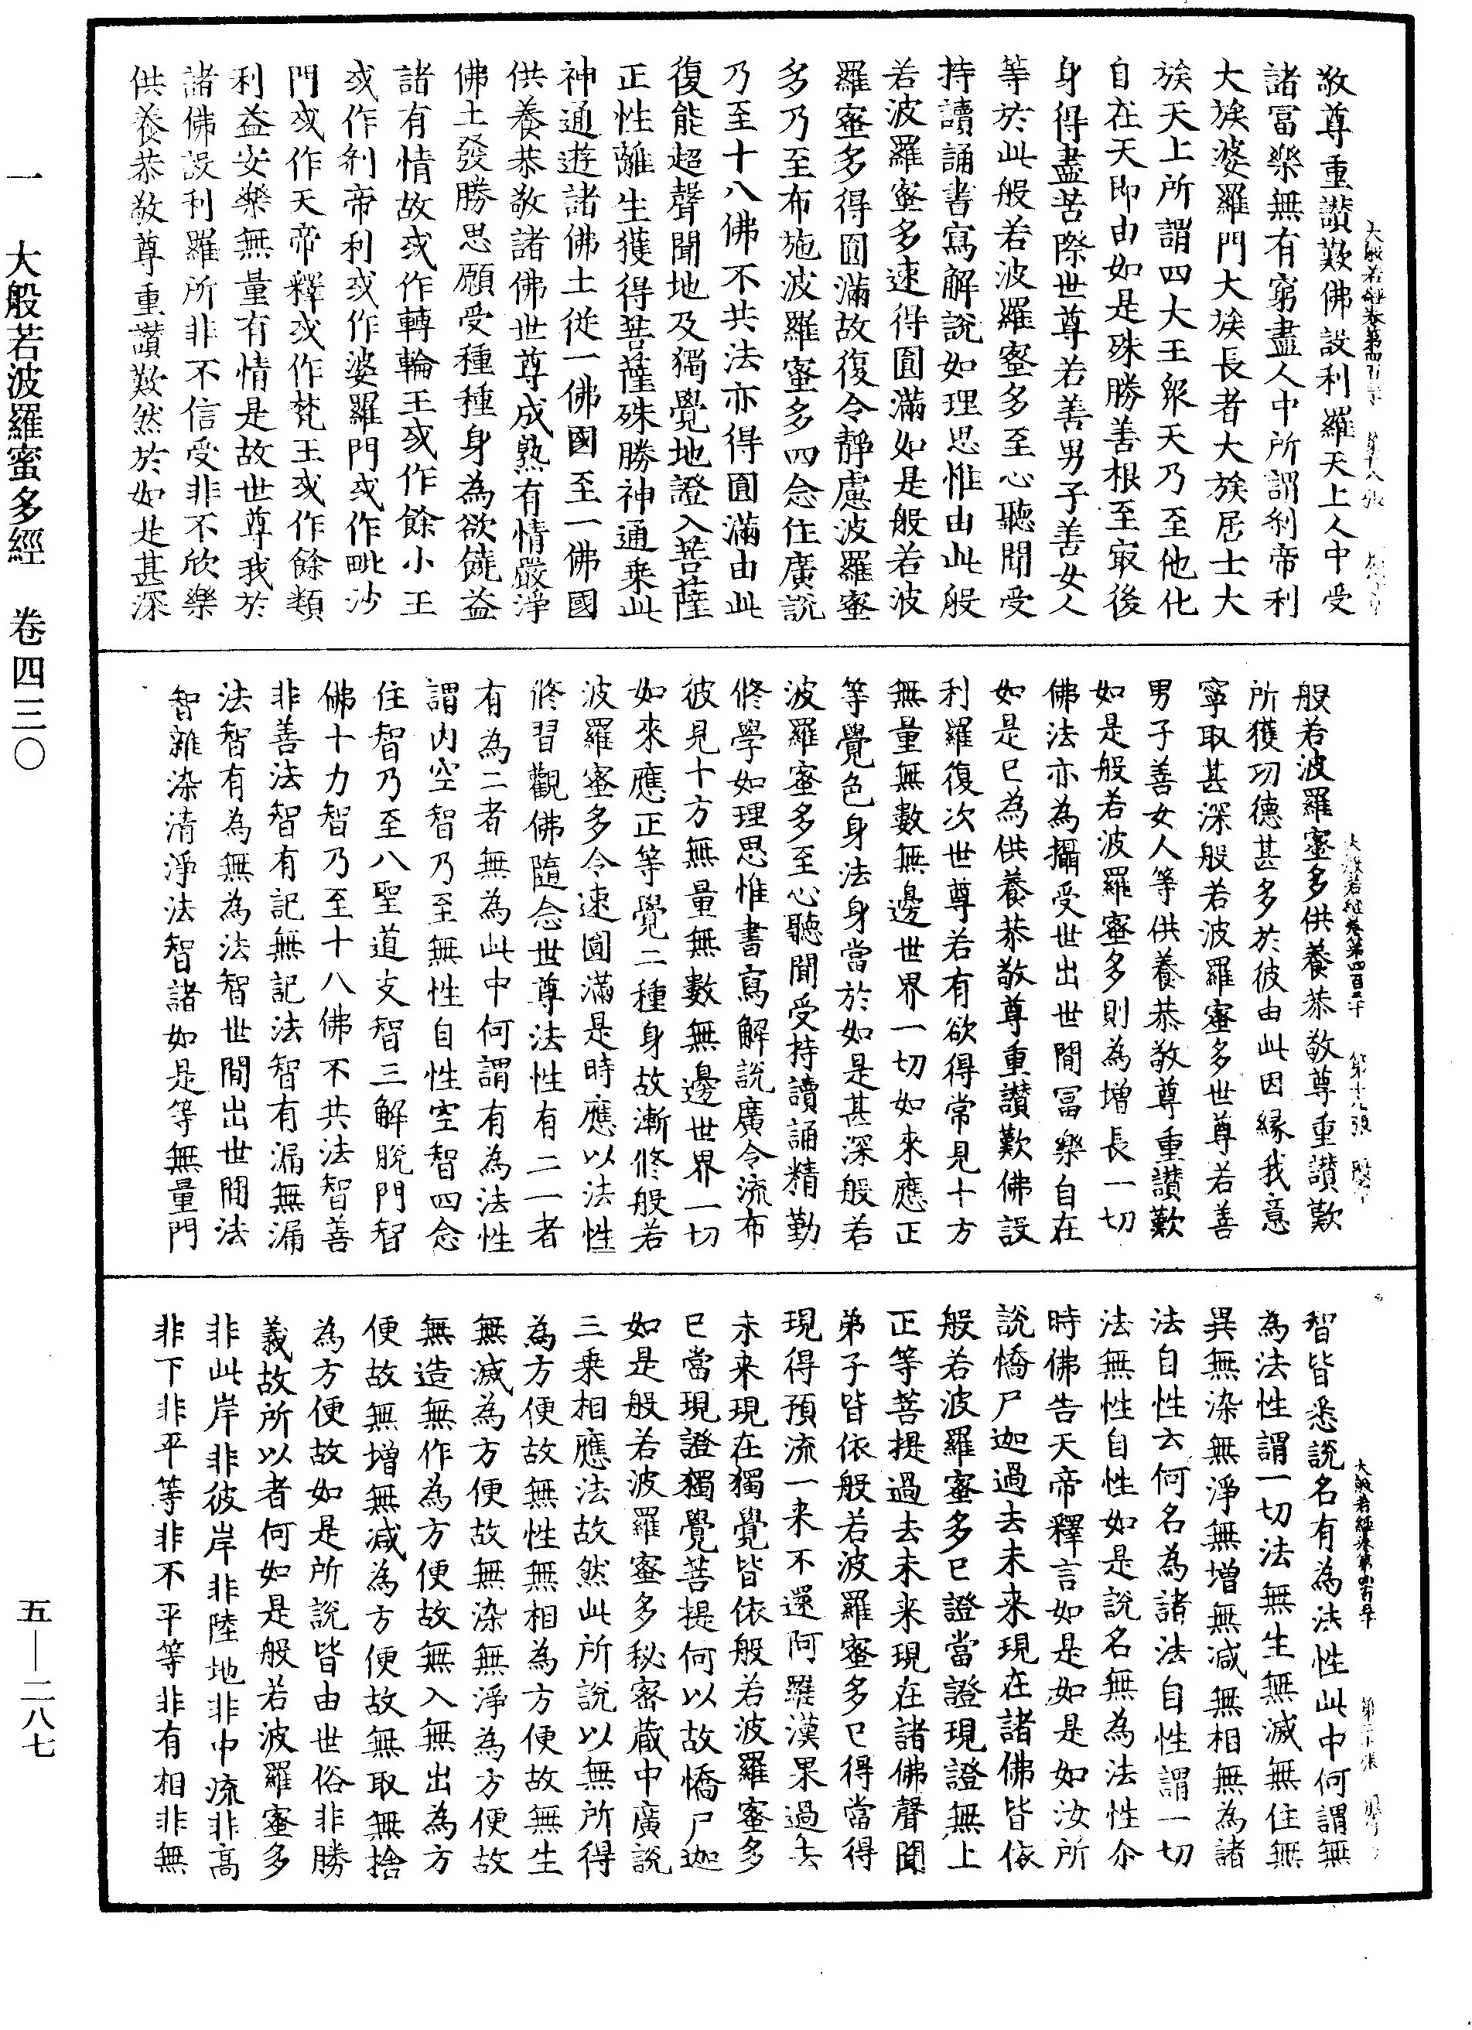 敬尊重讃歎佛設利羅天上人中受
諸冨樂無有窮盡人中所謂刹帝利
大族婆羅門大族長者大族居士大
族天上所謂四大王衆天乃至他化
自在天即由如是殊勝善根至㝡後
身得盡苦際世尊若善男子善女人
等於此般若波羅蜜多至心聽聞受
持讀誦書寫解說如理思惟由此般
若波羅蜜多速得圓滿如是般若波
羅蜜多得圓滿故復令靜慮波羅蜜
多乃至布施波羅蜜多四念住廣說
乃至十八佛不共法亦得圓滿由此
復能超聲聞地及獨覺地證入菩薩
正性離生獲得菩薩殊勝神通乗此
神通遊諸佛土從一佛國至一佛國
供養恭敬諸佛世尊成熟有情嚴淨
佛土發勝思願受種種身為欲饒益
諸有情故或作轉輪王或作餘小王
或作刹帝利或作婆羅門或作毗沙
門或作天帝釋或作梵王或作餘類
利益安樂無量有情是故世尊我於
諸佛設利羅所非不信受非不欣樂
供養恭敬尊重讃歎然於如是甚深
般若波羅蜜多供養恭敬尊重讃歎
所獲功德甚多於彼由此因緣我意
寧取甚深般若波羅蜜多世尊若善
男子善女人等供養恭敬尊重讃歎
如是般若波羅蜜多則為增長一切
佛法亦為攝受世出世間冨樂自在
如是已為供養恭敬尊重讃歎佛設
利羅復次世尊若有欲得常見十方
無量無數無邊世界一切如來應正
等覺色身法身當於如是甚深般若
波羅蜜多至心聽聞受持讀誦精勤
修學如理思惟書寫解說廣令流布
彼見十方無量無數無邊世界一切
如來應正等覺二種身故漸修般若
波羅蜜多令速圓滿是時應以法性
修習觀佛隨念世尊法性有二一者
有為二者無為此中何謂有為法性
謂內空智乃至無性自性空智四念
住智乃至八聖道支智三解脫門智
佛十力智乃至十八佛不共法智善
非善法智有記無記法智有漏無漏
法智有為無為法智世間出世間法
智雜染清淨法智諸如是等無量門
智皆悉說名有為法性此中何謂無
為法性謂一切法無生無滅無住無
異無染無淨無增無減無相無為諸
法自性云何名為諸法自性謂一切
法無性自性如是說名無為法性尒
時佛告天帝釋言如是如是如汝所
說憍尸迦過去未來現在諸佛皆依
般若波羅蜜多已證當證現證無上
正等菩提過去未來現在諸佛聲聞
弟子皆依般若波羅蜜多已得當得
現得預流一来不還阿羅漢果過去
未来現在獨覺皆依般若波羅蜜多
已當現證獨覺菩提何以故憍尸迦
如是般若波羅蜜多秘密蔵中廣說
三乗相應法故然此所說以無所得
為方便故無性無相為方便故無生
無滅為方便故無染無淨為方便故
無造無作為方便故無入無出為方
便故無增無減為方便故無取無捨
為方便故如是所說皆由世俗非勝
義故所以者何如是般若波羅蜜多
非此岸非彼岸非陸地非中流非高
非下非平等非不平等非有相非無
一 大般若波羅蜜多經 卷四三〇
五—二八七